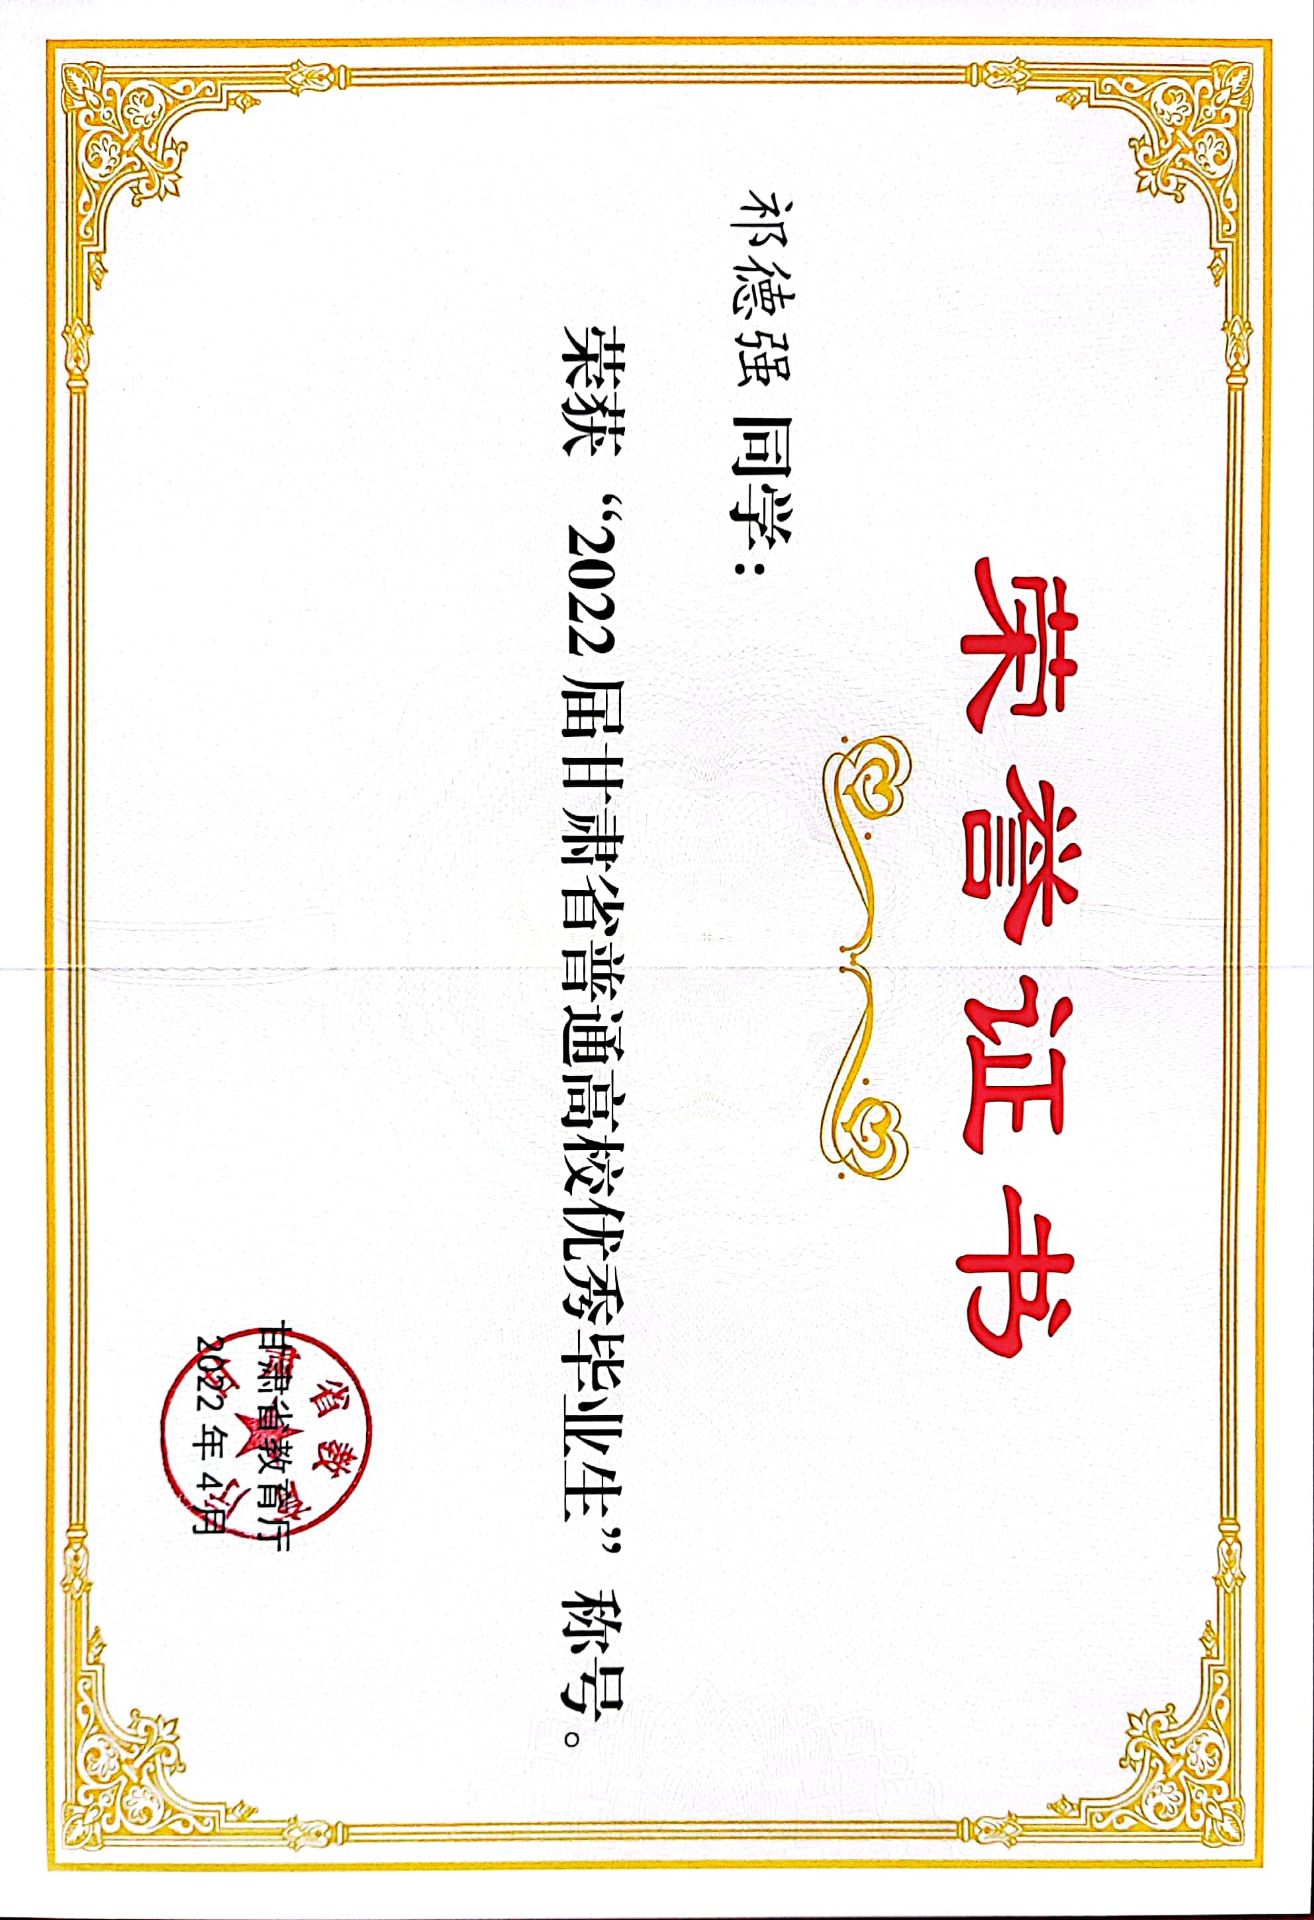 荣誉证书
祁德强 同学：
荣获“2022届甘肃省普通高校优秀毕业生”称号。
甘肃省教育厅
2022年4月
甘肃省教育厅